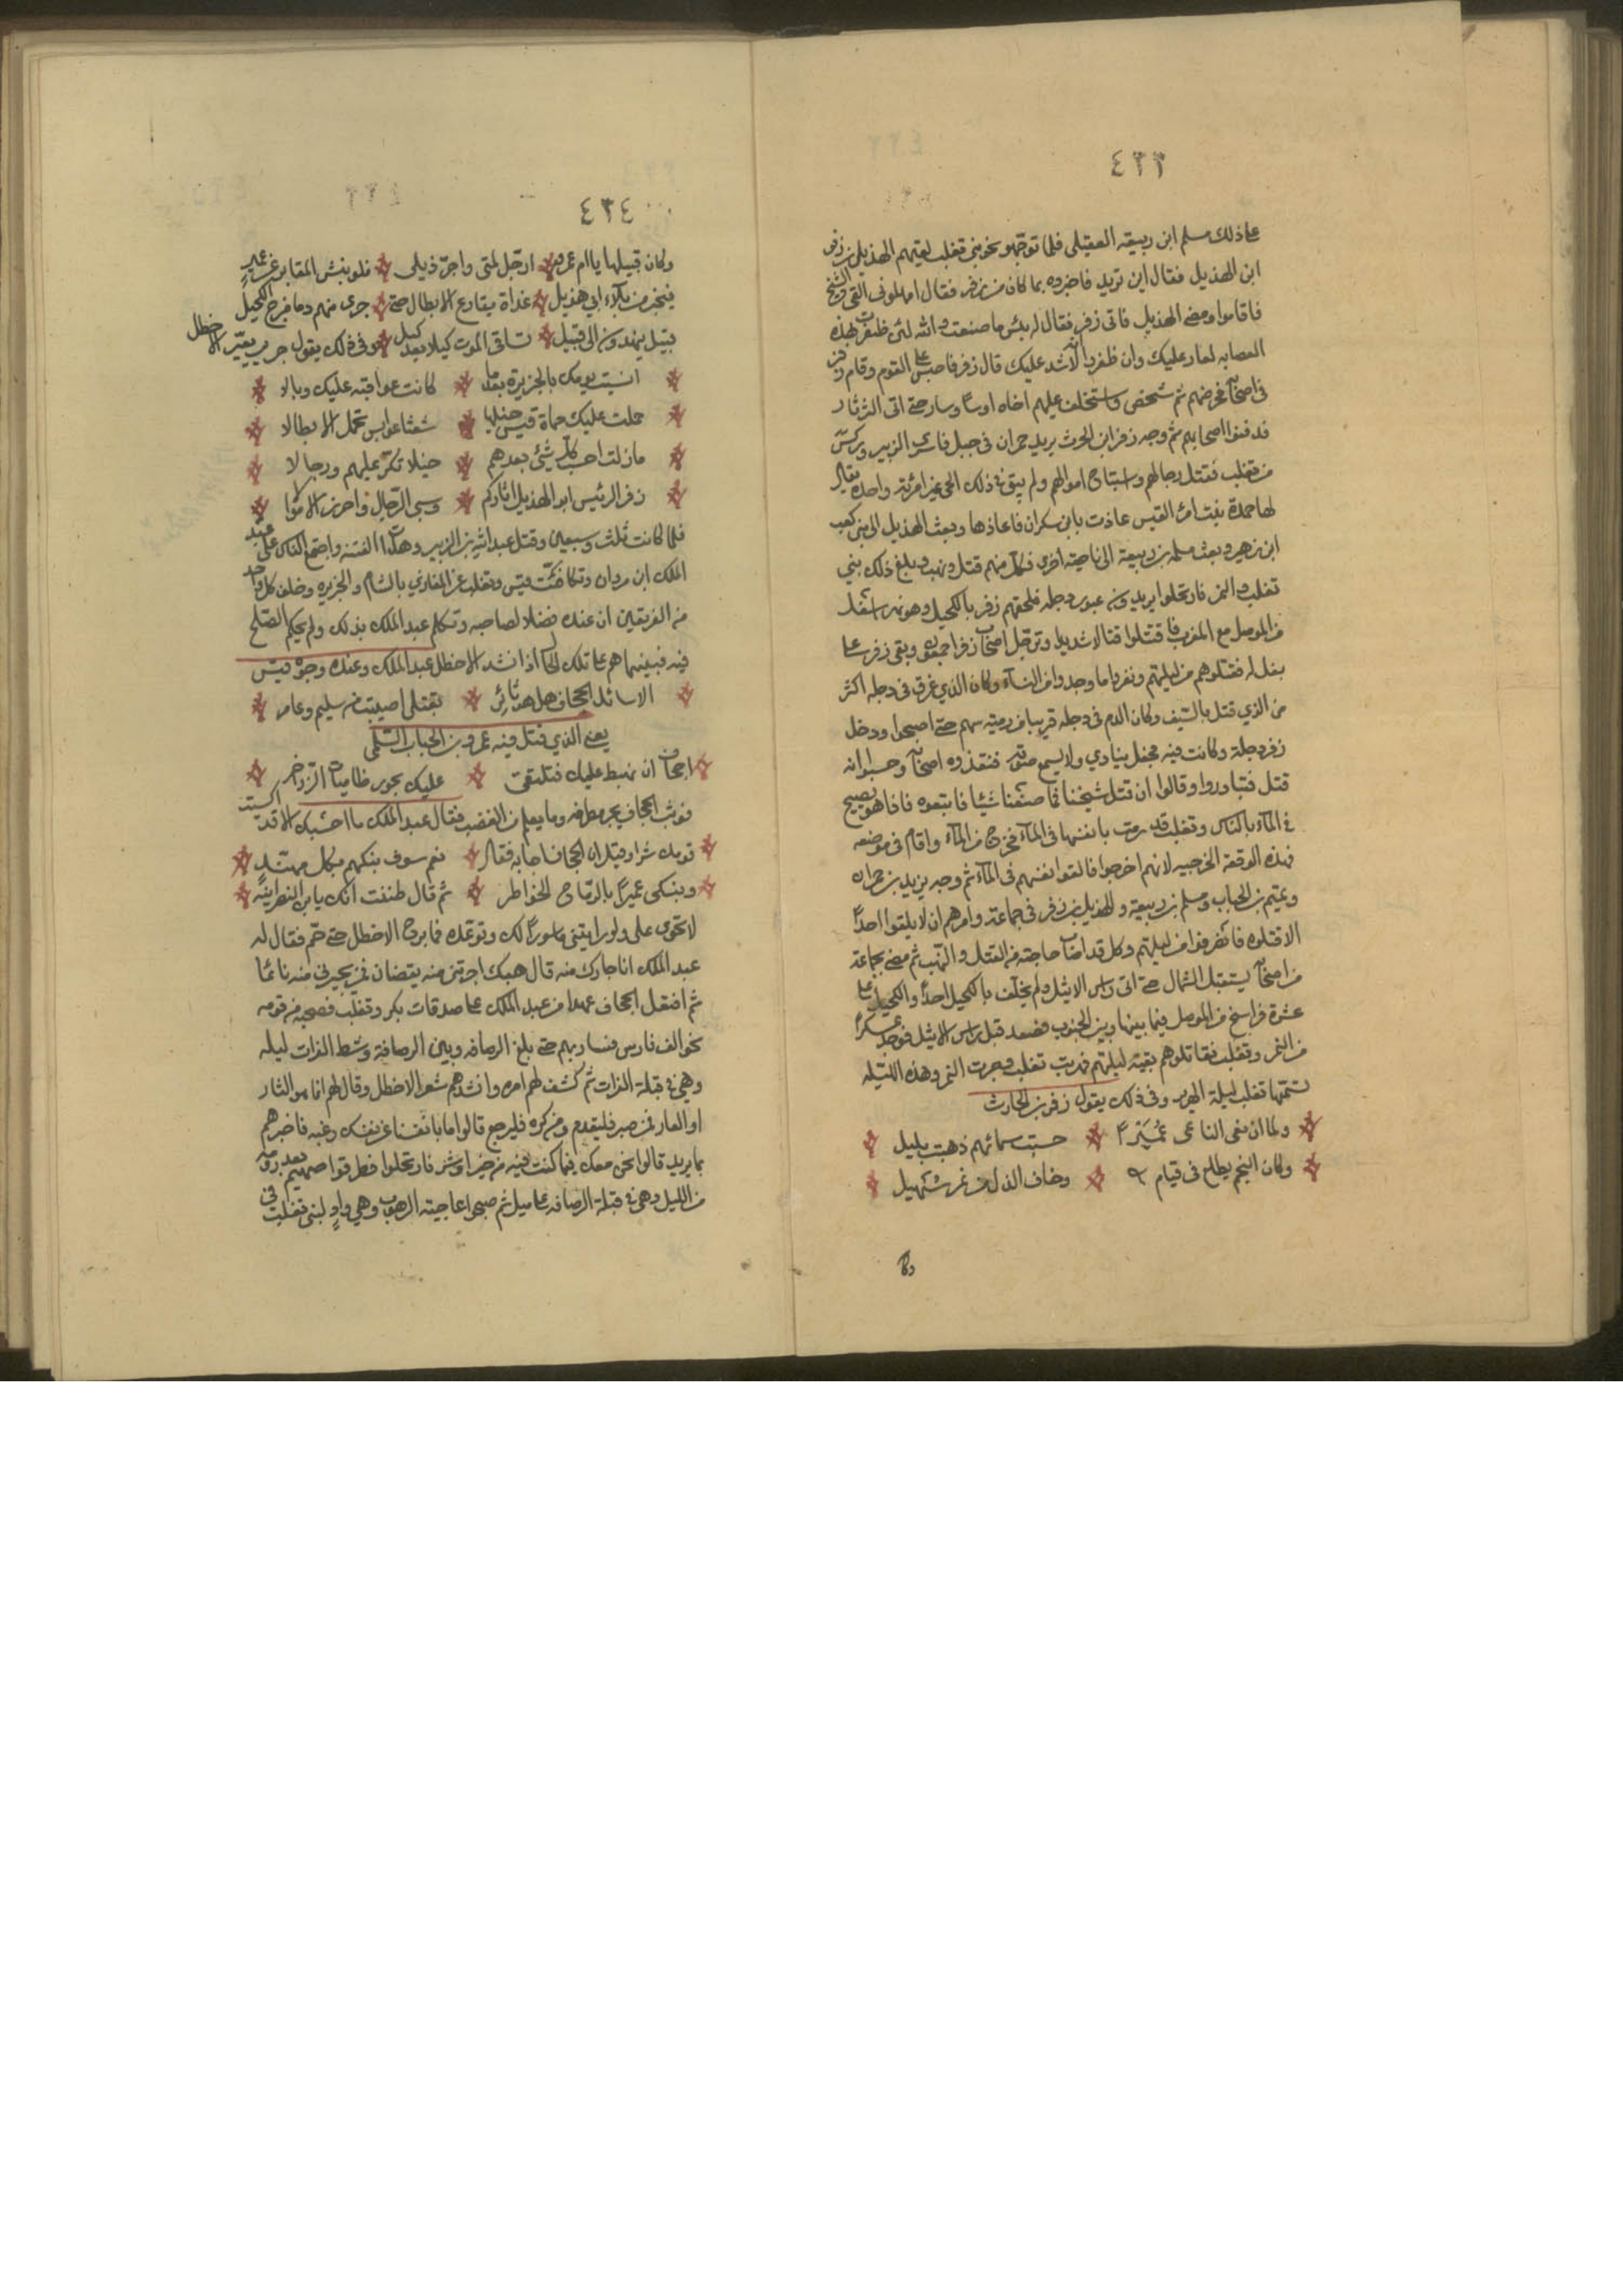 ٤٣٣
على ذلك مسلم ابن ربيعة العقيلى فلما توجهو نحو بنى تغلب لقيهم الهذيل بن زفر
ابن الهذيل فقال اين تريد فاخبروه بما كان من زفر فقال امهلونى القى الشيخ
فاقاموا ومضى الهذيل فاتى زفر فقال له بئس ما صنعت والله لئن ظفرت بهذه
العصابه لعار عليك وان ظفروا لاشد عليك قال زفر فاحبس على القوم وقام زفر
فى اصحابه فحرضهم ثم شخص واستخلف عليهم اخاه اوسا وسار حتى اتى الثرثار
فدفنوا اصحابهم ثم وجه زفر ابن الحرث يزيد حمران فى خيل
من تغلب فقتل رجالهم واستباح اموالهم ولم يبق فى ذلك الحى غير امرئة واحدة يقال
لها حميدة بنت امرئ القيس عاذت بابن حمران فاعاذها وبعث الهذيل الى بنى كعب
ابن زهير وبعث مسلم بن ربيعة الى ناحية اخرى منهم قتل وبلغ ذلك بنى
تغلب والنمر فارتحلوا يريدون عبور دجله فلحقهم زفر بالكحيل وهو نهر اسفل
من الموصل مع المغرب فاقتتلوا قتالا شديدا وترجل اصحاب زفر اجمعون وبقى زفر على
بغل له فقتلوهم من ليلتهم وبقروا ما وجدوا من النسآء وكان الذي غرق فى دجله اكثر
من الذي قتل بالسيف وكان الدم فى دجله قريبا من رمية سهم حتى اصبحوا ودخل
زفر دجلة وكانت فيه بحة ينادي ولا يسمع صوته ففقدوه اصحابه وحسبوا انه
قتل فتبادروا وقالوا ان قتل شيخنا فما صنعنا شيئا فاتبعوه فاذا هو يصيح
فى المآء بالناس وتغلب قد رمت بانفسها فى المآء فخرج من المآء واقام فى موضعه
فهذه الوقعة الحرجيه لانهم احرجوا فالقوا انفسهم فى المآء ثم وجه يزيد بن حمران
وتميم بن الحباب ومسلم بن ربيعة والهذيل بن زفر فى جماعته وامرهم ان لا يلقوا احدا
الا قتلوه فانصرفوا من ليلتهم وكل قد اصاب حاجته من القتل والنهب ثم مضى بجماعة
من اصحابه يستقبل الشمال حتى اتى راس الاثيل ولم يخلف بالكحيل احدا والكحيل على
عشرة فراسخ من الموصل فيما بينها وبين الجنوب فصعد قبل راس الاثيل فوجد عسكرا
من النمر وتغلب فقاتلوهم بقية ليلتهم فهربت تغلب وصبرت النمر وهذه الليله
تسميها تغلب ليلة الهرير وفى ذلك يقول زفر بن الحارث
ولما ان نعى الناعى عميرا حسبت سمائهم ذهبت بليل
وكان النجم يطلع فى قيام وخاف الذل من يمن سهيل
٤٣٤
وكان قبيلها يا ام عمرو ارجل لمتى واجر ذيلى فلو نبش المقابر عن عمير
فيخبر من بلاء ابى هذيل غداة يقارع الابطال حتى جرى منهم دما مرج الكحيل
قبيل ينهدون الى قبيل تساقى الموت كيلا بعد كيل وفى ذلك يقول جرير يعير الاخطل
انسيت يومك بالجزيرة بعدما كانت عواقبه عليك وبالا
حملت عليك حماة قيس خيلها شعثا عوابس تحمل الابطالا
ما زلت تحسب كل شئى بعدهم خيلا تكر عليهم ورجالا
زفر الرئيس ابو الهذيل اتاكم وسبى الرجال واحرز الاموالا
فلما كانت ثلث وسبعين وقتل عبد الله بن الزبير وهدأت الفتنه واجتمع الناس على عبد
الملك ابن مروان وتكافئت قيس وتغلب عن المغازي بالشام والجزيره وظن كل واحد
من الفريقين ان عنده فضلا لصاحبه وتكلم عبد الملك بذلك ولم يحكم الصلح
فيه فبينما هم على تلك الحال اذ انشد الاخطل عبد الملك وعنده وجوه قيس
الا سائل الجحاف هل هو ثائر بقتلى اصيبت من سليم وعامر
يعنى الذي قتل فيه عمرو بن الحباب السلمى
اجحاف ان نهبط عليك فتلتقى عليك بحور طاميات الزواخر
فوثب الجحاف يجر مطرفه وما يعلم من الغضب فقال عبد الملك ما احسبك الا قد اكسبت
قومك شرا وقيل ان الجحاف اجابه فقال نعم سوف نبكيهم بكل مهند
ونبكى عميرا بالرماح الخواطر ثم قال ظننت انك يا بن النصرانيه
لا تجرى على ولو رايتنى ماسورا لك وتوعده فما برح الاخطل حتى حم فقال له
عبد الملك انا جارك منه قال هبك اجرتنى منه يقضان فمن يجيرنى منه نائما
ثم افتعل الجحاف عهدا من عبد الملك على صدقات بكر وتغلب فصحبه من قومه
نحو الف فارس فسار بهم حتى بلغ الرصافه وبين الرصافة وشط الفرات ليله
وهى فى قبلة الفرات ثم كشف لهم امره وانشدهم شعر الاخطل وقال لهم انما هو النار
او العار فمن صبر فليقدم ومن كره فليرجع قالوا ما بانفسنا عن نفسك رغبه فاخبرهم
بما يريد قالوا نحن معك فيما كنت فيه من خير او شر فارتحلوا فطرقوا صهين بعد رؤبة
من الليل وهى فى قبلة الرصافه على ميل ثم صبحوا عاجنة الرحوب وهى واد لبنى تغلب